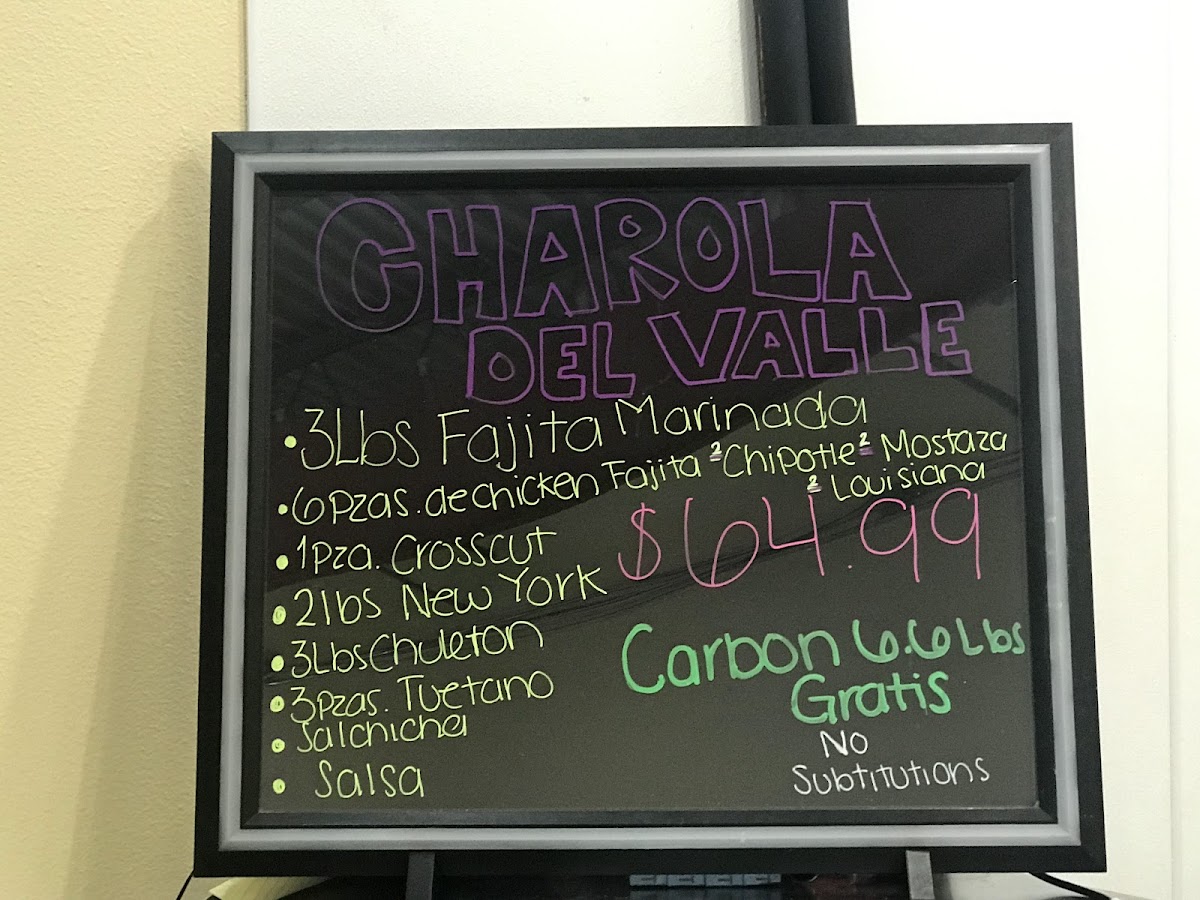 CHAROLA
DEL VALLE
• 3Lbs Fajita Marinada
• 6 Pzas. de chicken Fajita 2 Chipotle 2 Mostaza
2 Louisiana
• 1 Pza. Crosscut
$64.99
• 2lbs New York
• 3Lbs Chuleton
Carbon 6.6 Lbs
Gratis
• 3pzas. Tuetano
• Salchicha
No
• Salsa
Subtitutions